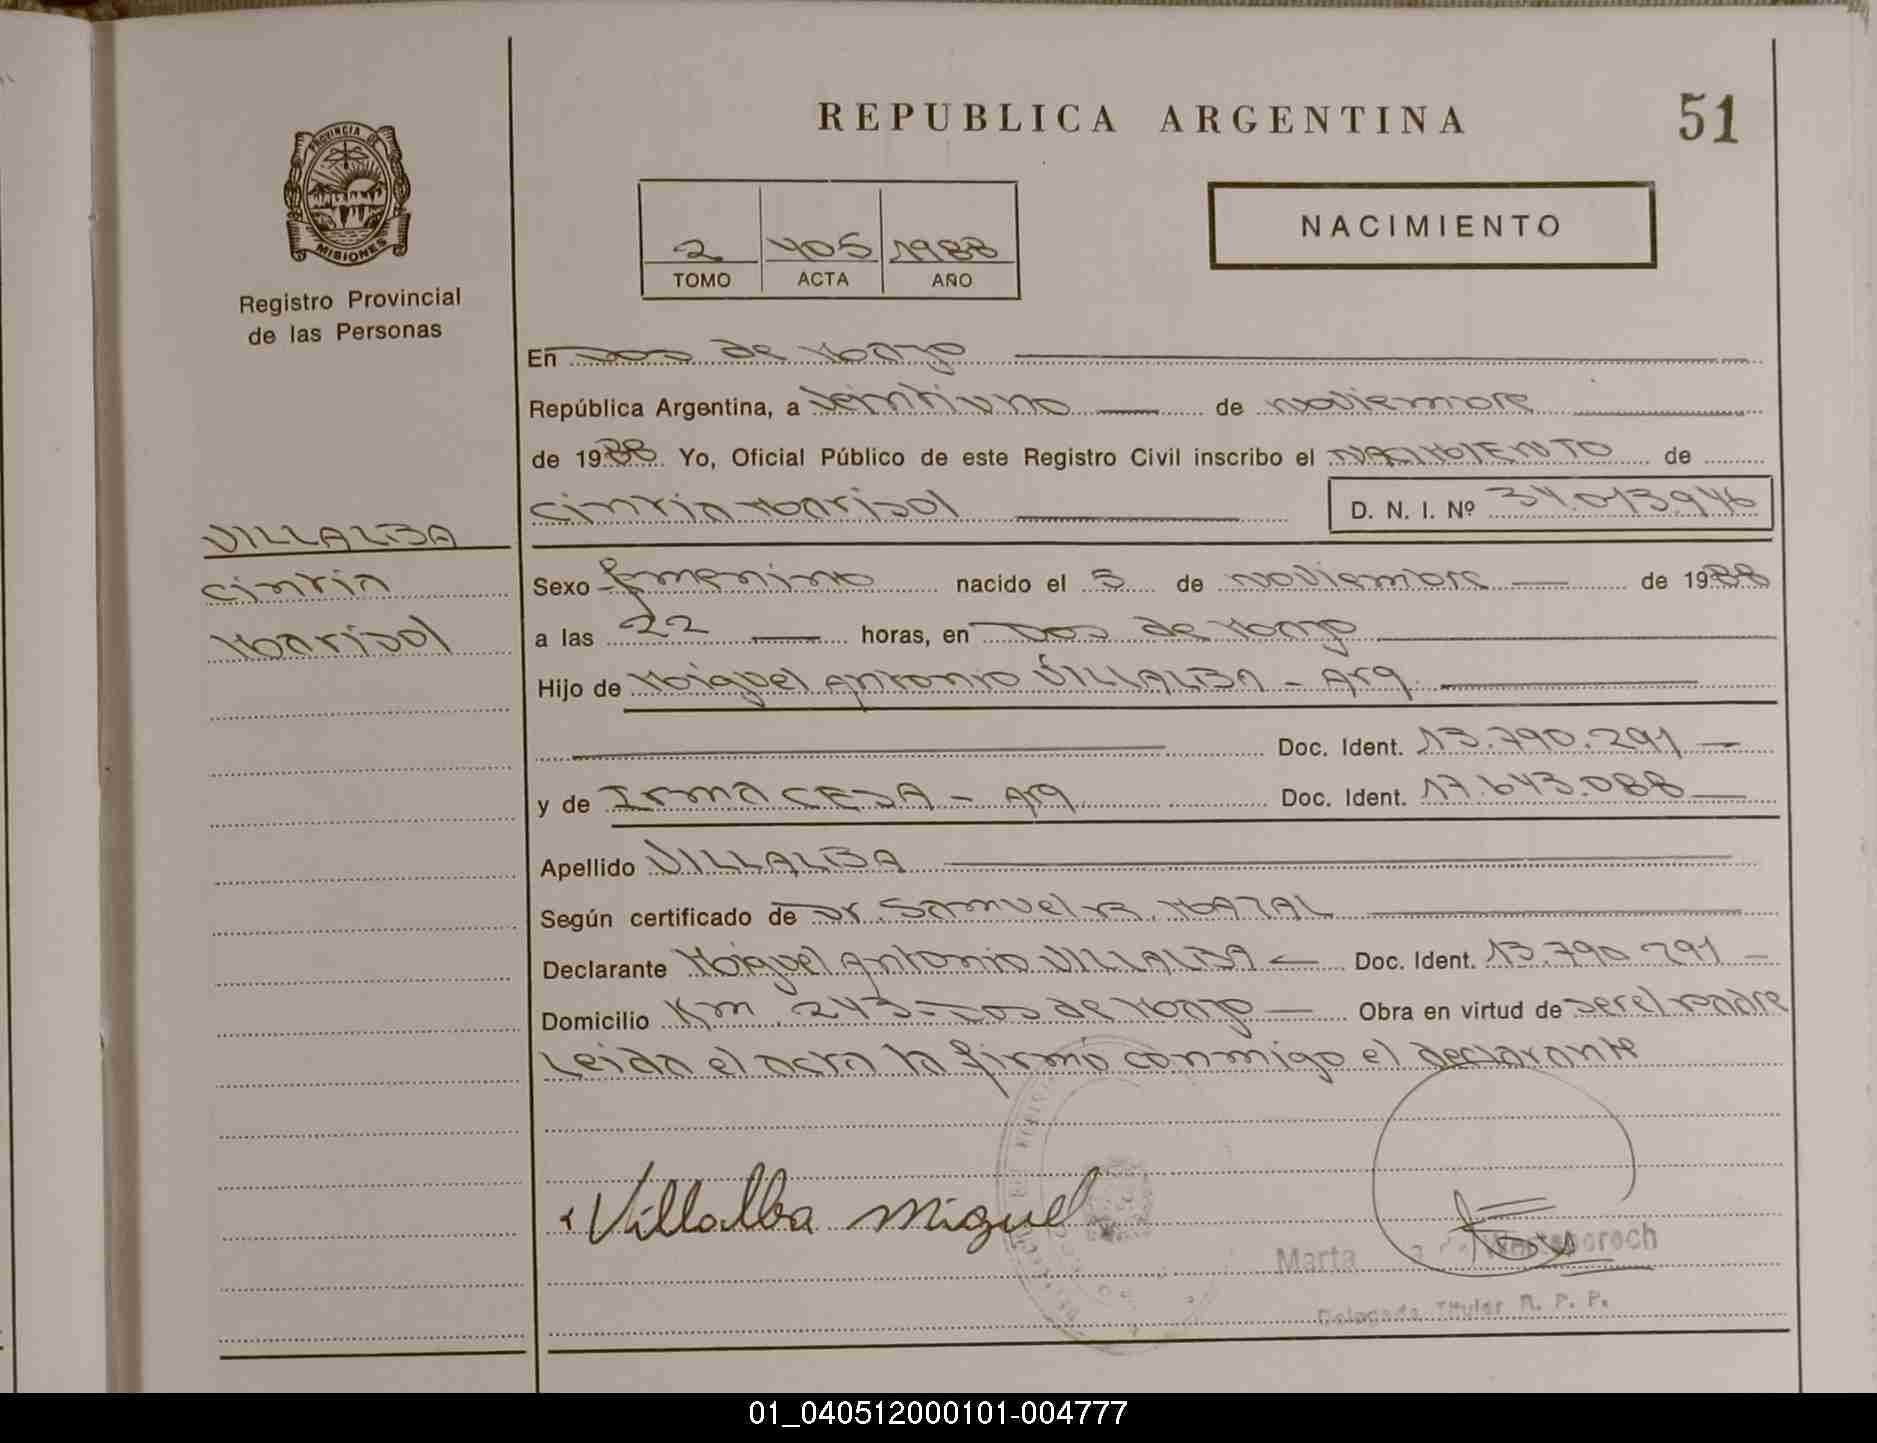 REPUBLICA ARGENTINA
51
PROVINCIA DE
MISIONES
Registro Provincial
de las Personas
2 405 1988
TOMO ACTA AÑO
NACIMIENTO
En Dos de Mayo
República Argentina, a veintiuno de noviembre
de 1988 Yo, Oficial Público de este Registro Civil inscribo el NACIMIENTO de
Cintia Marisol D. N. I. Nº 34.013.946
VILLALBA
Cintia
Marisol
Sexo femenino nacido el 5 de noviembre de 1988
a las 22 horas, en Dos de Mayo
Hijo de Miguel Antonio VILLALBA - Arg.
Doc. Ident. 13.790.291
y de Irma CEJA - Arg Doc. Ident. 17.643.088
Apellido VILLALBA
Según certificado de Dr. Samuel
Declarante Miguel Antonio VILLALBA Doc. Ident. 13.790.291
Domicilio Km. 243 - Dos de Mayo Obra en virtud de ser el padre
Leida el acta la firmó conmigo el declarante
Villalba Miguel
Marta
Delegada Titular R. P. P.
01_040512000101-004777